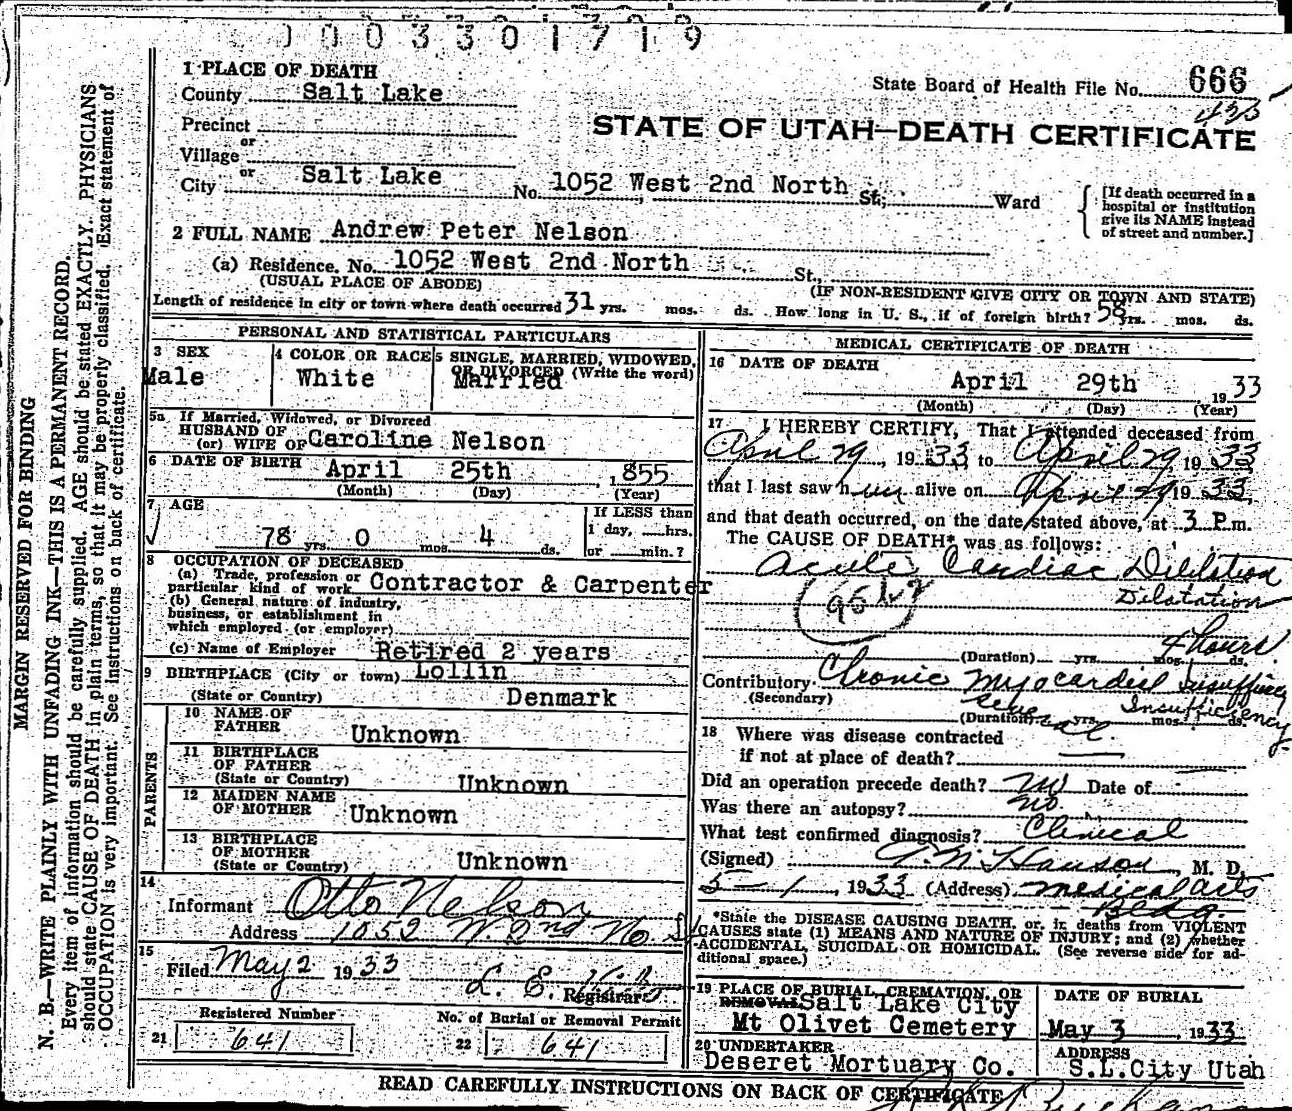 0 0 0 3 3 0 1 7 1 9
1 PLACE OF DEATH
State Board of Health File No. 666
County Salt Lake
Precinct
or
Village
or
City Salt Lake No. 1052 West 2nd North St.; Ward
STATE OF UTAH—DEATH CERTIFICATE
[If death occurred in a
hospital or institution
give its NAME instead
of street and number.]
2 FULL NAME Andrew Peter Nelson
(a) Residence. No. 1052 West 2nd North St.,
(USUAL PLACE OF ABODE) (IF NON-RESIDENT GIVE CITY OR TOWN AND STATE)
Length of residence in city or town where death occurred 31 yrs. mos. ds. How long in U. S., if of foreign birth? 58 yrs. mos. ds.
PERSONAL AND STATISTICAL PARTICULARS
3 SEX 4 COLOR OR RACE 5 SINGLE, MARRIED, WIDOWED,
OR DIVORCED (Write the word)
Male White Married
5a If Married, Widowed, or Divorced
HUSBAND OF
(or) WIFE OF Caroline Nelson
6 DATE OF BIRTH April 25th 1855
(Month) (Day) (Year)
7 AGE If LESS than
1 day, hrs.
78 yrs. 0 mos. 4 ds. or min.?
8 OCCUPATION OF DECEASED
(a) Trade, profession or
particular kind of work Contractor & Carpenter
(b) General nature of industry,
business, or establishment in
which employed (or employer)
(c) Name of Employer Retired 2 years
9 BIRTHPLACE (City or town) Lollin
(State or Country) Denmark
PARENTS
10 NAME OF
FATHER Unknown
11 BIRTHPLACE
OF FATHER
(State or Country) Unknown
12 MAIDEN NAME
OF MOTHER Unknown
13 BIRTHPLACE
OF MOTHER
(State or Country) Unknown
14
Informant Otto Nelson
Address 1052 W. 2nd No. St
15
Filed May 2 1933
L. E. Registrar
Registered Number No. of Burial or Removal Permit
21 641 22 641
MEDICAL CERTIFICATE OF DEATH
16 DATE OF DEATH
April 29th 1933
(Month) (Day) (Year)
17 I HEREBY CERTIFY, That I attended deceased from
April 29, 1933 to April 29 1933
that I last saw him alive on April 29 1933,
and that death occurred, on the date stated above, at 3 P.m.
The CAUSE OF DEATH* was as follows:
Acute Cardiac Dilation
Dilatation
4 hours
(Duration) yrs. mos. ds.
Contributory Chronic Myocardial Insufficiency
(Secondary) Several Insufficiency
(Duration) yrs. mos. ds.
18 Where was disease contracted
if not at place of death?
Did an operation precede death? no Date of
Was there an autopsy? no
What test confirmed diagnosis? Clinical
(Signed) Hanson, M. D.
5-1, 1933 (Address) Medical Arts
Bldg.
*State the DISEASE CAUSING DEATH, or, in deaths from VIOLENT
CAUSES state (1) MEANS AND NATURE OF INJURY; and (2) whether
ACCIDENTAL, SUICIDAL OR HOMICIDAL. (See reverse side for ad-
ditional space.)
19 PLACE OF BURIAL, CREMATION, OR
REMOVAL Salt Lake City
Mt Olivet Cemetery
DATE OF BURIAL
May 3, 1933
20 UNDERTAKER
Deseret Mortuary Co.
ADDRESS
S.L.City Utah
READ CAREFULLY INSTRUCTIONS ON BACK OF CERTIFICATE
MARGIN RESERVED FOR BINDING
N. B.—WRITE PLAINLY WITH UNFADING INK—THIS IS A PERMANENT RECORD.
Every item of information should be carefully supplied. AGE should be stated EXACTLY. PHYSICIANS
should state CAUSE OF DEATH in plain terms, so that it may be properly classified. Exact statement of
OCCUPATION is very important. See instructions on back of certificate.